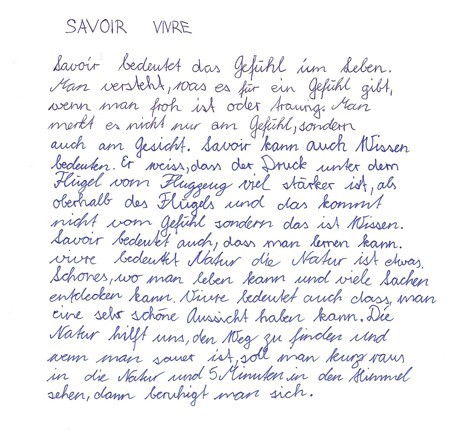 SAVOIR VIVRE
Savoir bedeutet das Gefühl im Leben.
Man versteht, was es für ein Gefühl gibt,
wenn man froh ist oder traurig. Man
merkt es nicht nur am Gefühl, sondern
auch am Gesicht. Savoir kann auch Wissen
bedeuten. Er weiss, dass der Druck unter dem
Flügel vom Flugzeug viel stärker ist, als
oberhalb des Flügels und das kommt
nicht vom Gefühl sondern das ist Wissen.
Savoir bedeutet auch, dass man lernen kann.
vivre bedeutet Natur die Natur ist etwas
Schönes, wo man leben kann und viele Sachen
entdecken kann. Vivre bedeutet auch dass, man
eine sehr schöne Aussicht haben kann. Die
Natur hilft uns, den Weg zu finden und
wenn man sauer ist, soll man kurz raus
in die Natur und 5 Minuten in den Himmel
sehen, dann beruhigt man sich.